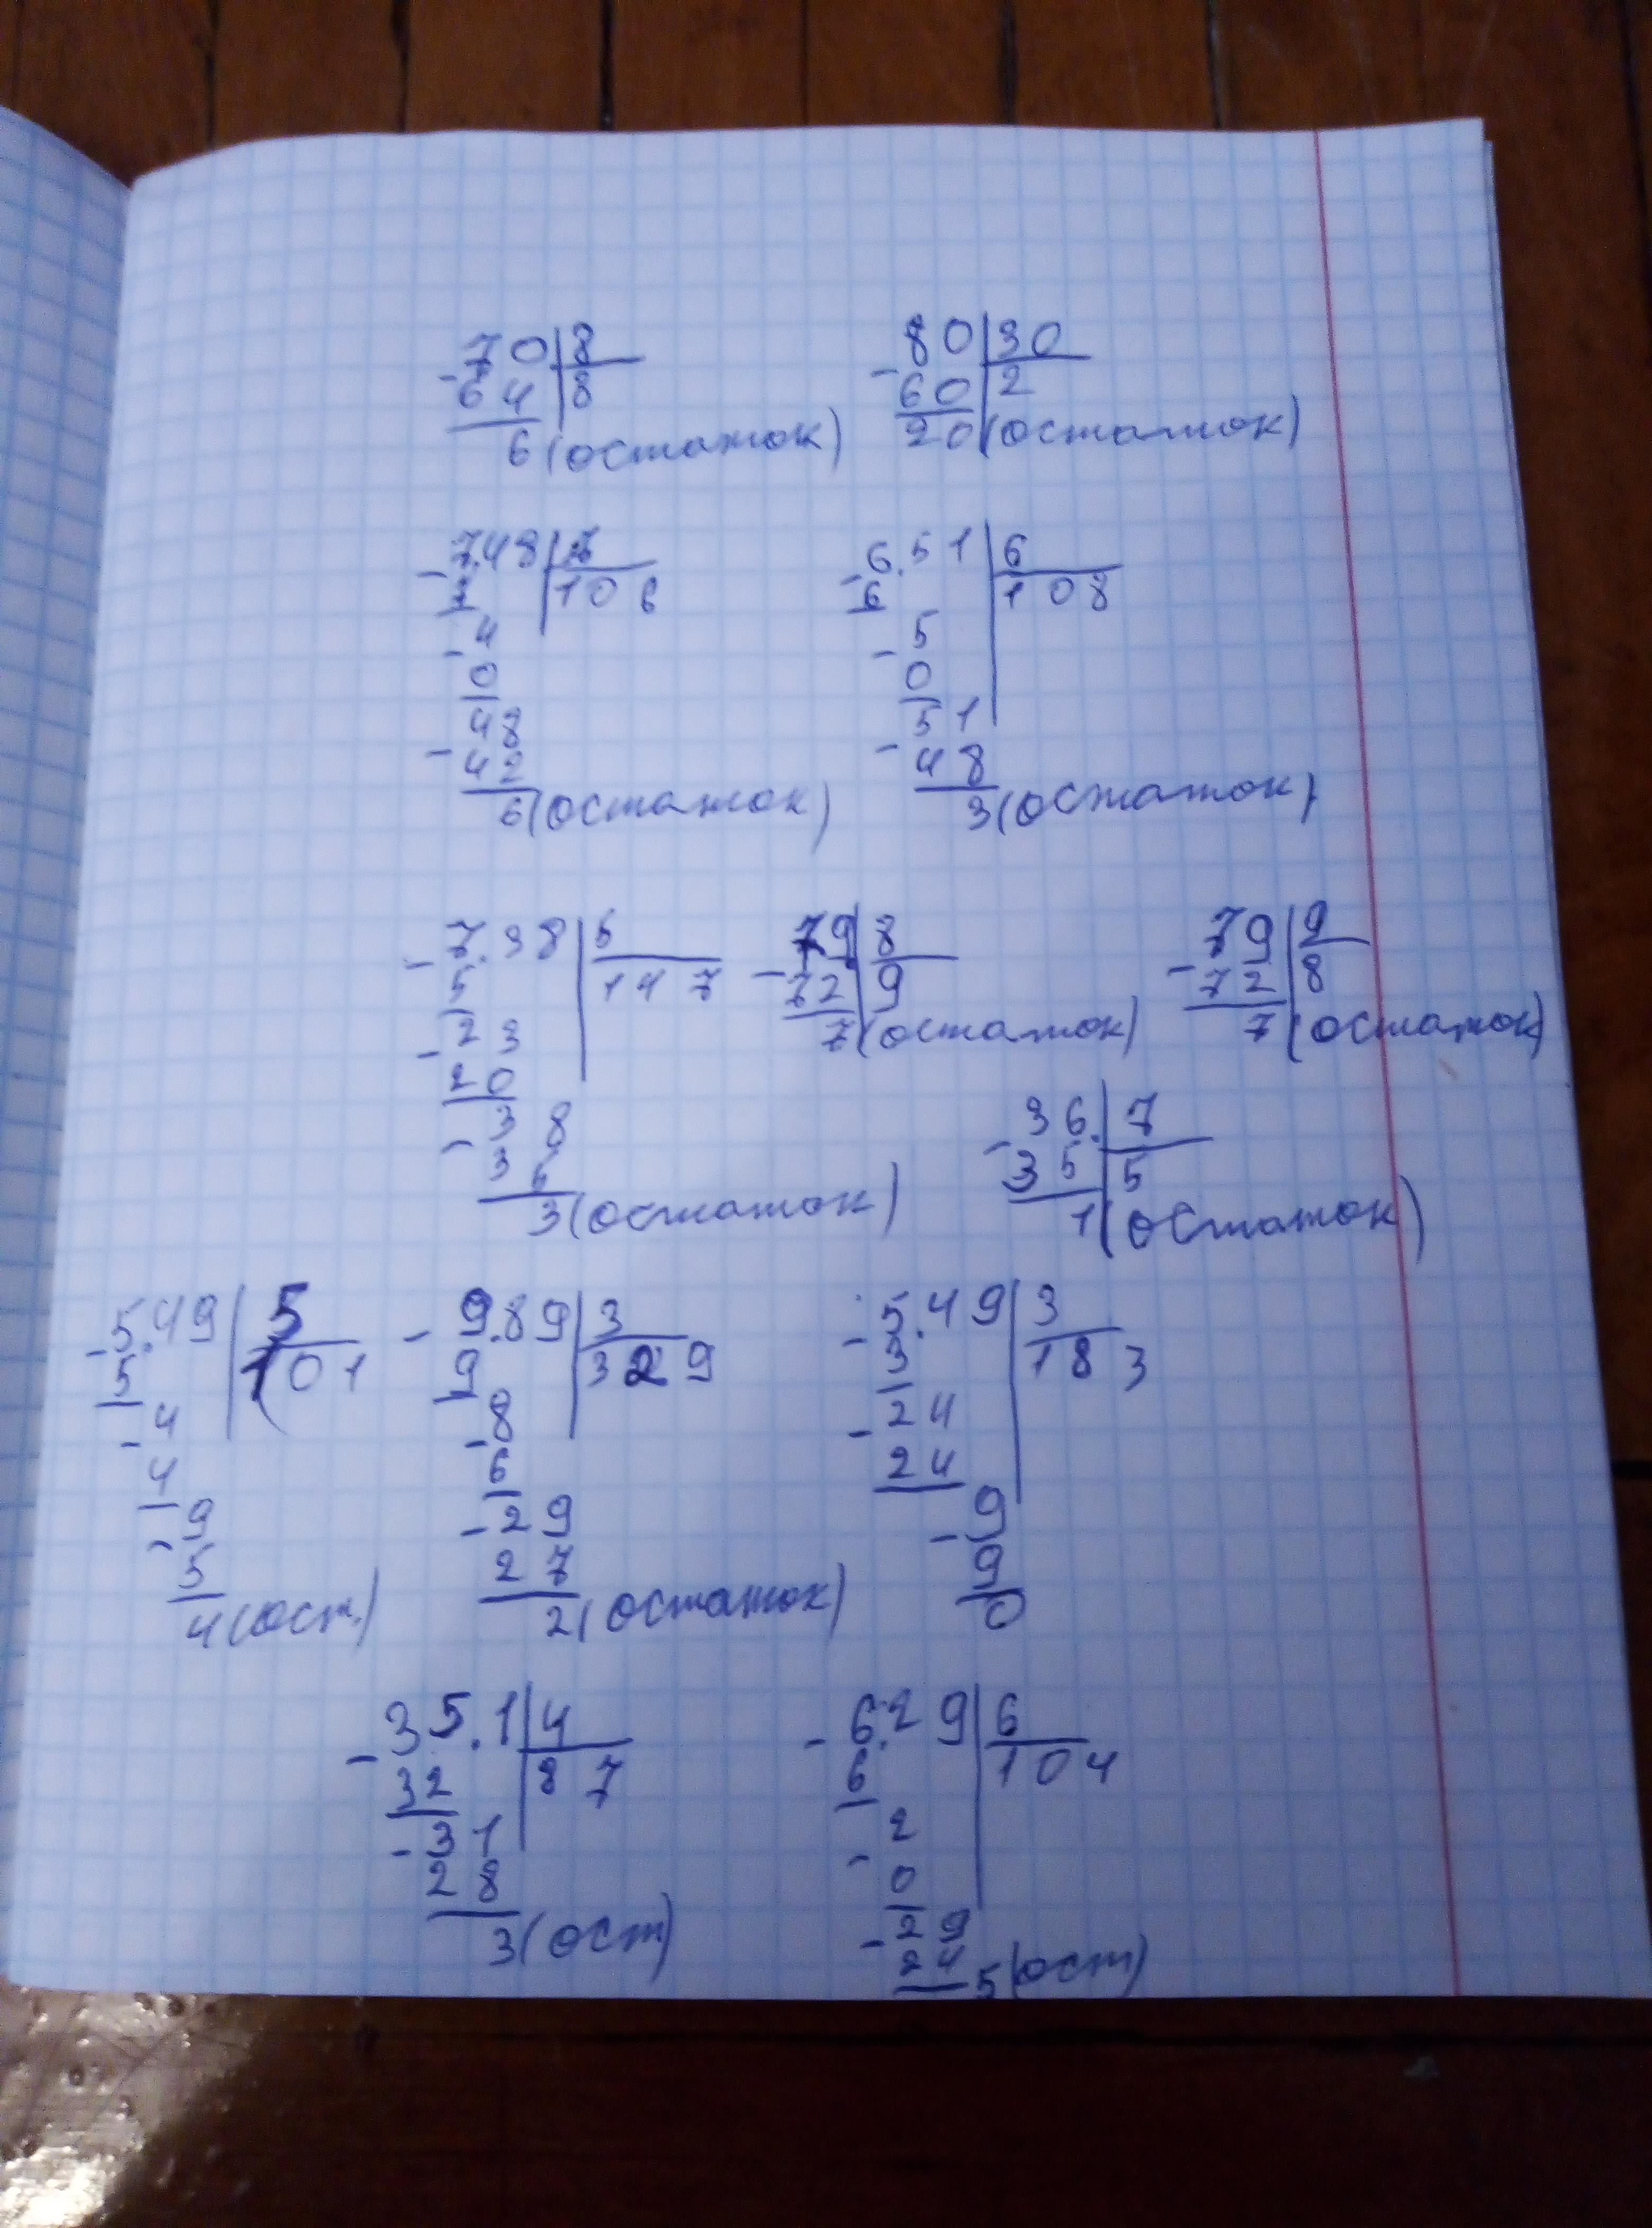 70 8 80 30
- 64 8 - 60 2
6 (остаток) 20 (остаток)
- 7.48 7 - 6.51 6
7 106 6 108
- 4 - 5
0 0
- 48 - 51
42 48
6 (остаток) 3 (остаток)
- 7.38 5 - 79 8 - 79 9
5 147 72 9 72 8
- 23 7 (остаток) 7 (остаток)
20
- 38 - 36. 7
35 35 5
3 (остаток) 1 (остаток)
- 5.49 5 - 9.89 3 - 5.49 3
5 101 9 329 3 183
- 4 - 8 - 24
4 6 24
- 9 - 29 - 9
5 27 9
4 (ост.) 2 (остаток) 0
- 35.1 4 - 6.29 6
32 87 6 104
- 31 - 2
28 0
3 (ост) - 29
24 5 (ост)